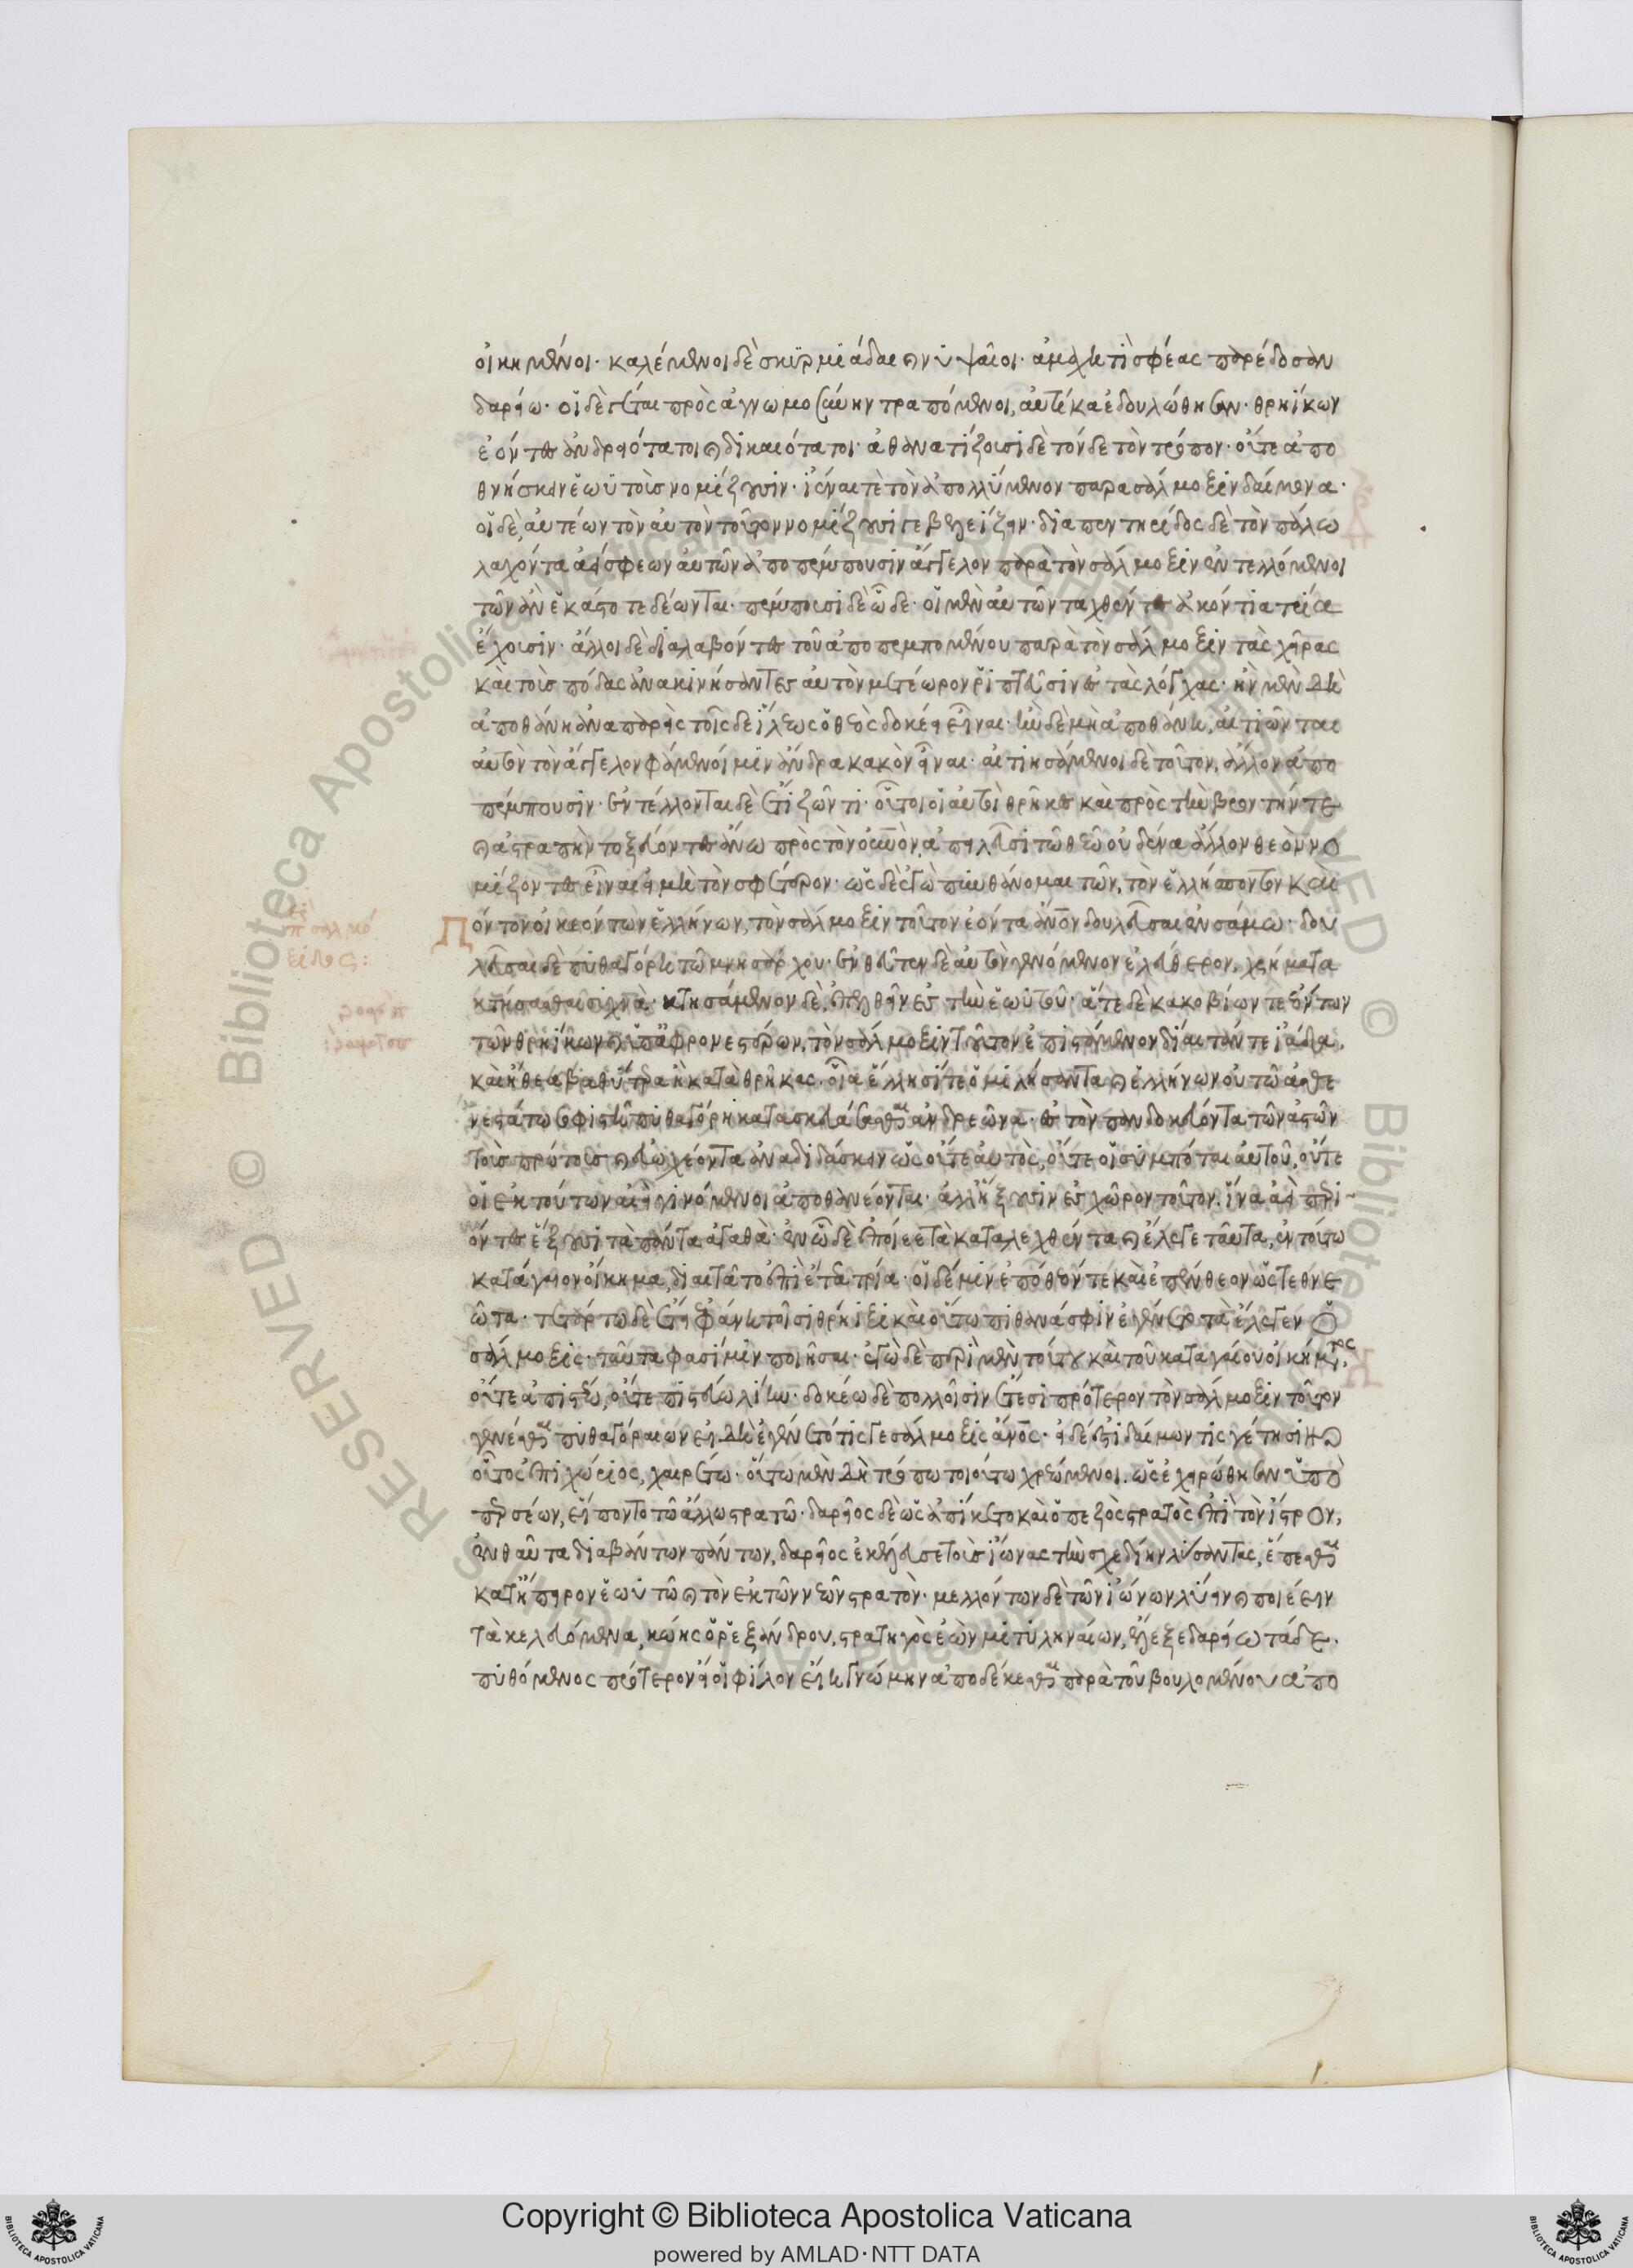 οἰκημένοι· καλέμενοι δὲ σκυρμιάδαι καὶ νιψαῖοι· ἀμαχητὶ σφέας παρέδοσαν
δαρείω· οἱ δὲ γέται πρὸς ἀγνωμοσύνην τραπόμενοι, αὐτίκα ἐδουλώθησαν· θρηίκων
ἐόντες ἀνδρειότατοι καὶ δικαιότατοι· ἀθανατίζουσι δὲ τόνδε τὸν τρόπον· οὔτε ἀπο
θνήσκειν ἑωυτοὺς νομίζουσιν· ἰέναι τὲ τὸν ἀπολλύμενον παρὰ σάλμοξιν δαίμονα·
οἱ δὲ, αὐτέων τὸν αὐτὸν τοῦτον νομίζουσι γεβελέιζιν· διὰ πεντηρίδος δὲ τὸν πάλω
λαχόντα ἀεὶ σφεων αὐτῶν ἀποπέμπουσιν ἄγγελον παρὰ τὸν σάλμοξιν ἐντελλόμενοι
τῶν ἂν ἑκάστοτε δέωνται· πέμπουσι δὲ ὧδε· οἱ μὲν αὐτῶν ταχθέντες ἀκόντια τρία
ἔχουσιν· ἄλλοι δὲ διαλαβόντες τοῦ ἀποπεμπομένου παρὰ τὸν σάλμοξιν τὰς χεῖρας
καὶ τοὺς πόδας ἀνακινήσαντες αὐτὸν μετέωρον ῥιπτεῦσιν ἐς τὰς λόγχας· ἢν μὲν δὴ
ἀποθάνη ἀναπαρεὶς τοῖς δε ἵλεως ὁ θεὸς δοκέει εἶναι· ἢν δὲ μὴ ἀποθάνη, αἰτιῶνται
αὐτὸν τὸν ἄγγελον φάμενοί μιν ἄνδρα κακὸν εἶναι· αἰτιησάμενοι δὲ τοῦτον, ἄλλον ἀπο
πέμπουσιν· ἐντέλλονται δὲ ἔτι ζῶντι· οὗτοι οἱ αὐτοὶ θρήικες καὶ πρὸς τὴν βροντήν τε
καὶ ἀστραπὴν τοξεύοντες ἄνω πρὸς τὸν οὐνὸν, ἀπειλεῦσι τῶ θεῶ οὐδένα ἄλλον θεὸν νο
μίζοντες εἶναι εἰ μὴ τὸν σφέτερον· ὡς δὲ ἐγὼ πυνθάνομαι τῶν, τὸν ἑλλήσποντον καὶ
Πόντον οἰκεόντων ἑλλήνων, τὸν σάλμοξιν τοῦτον ἐόντα ἄνον δουλεῦσαι ἐν σάμω· δου
λεῦσαι δὲ πυθαγόρη τῶ μνησάρχου· ἐνθεῦτεν δὲ αὐτὸν γενόμενον ἐλεύθερον, χρήματα
κτήσασθαι συχνά· κτησάμενον δὲ, ἀπελθεῖν ἐς τὴν ἑωυτοῦ· ἅτε δὲ κακοβίων τε ἐόντων
τῶν θρηίκων καὶ ὑπαφρονεστέρων, τὸν σάλμοξιν τοῦτον ἐπιστάμενον δίαιτάν τε ἰάδα,
καὶ ἤθεα βαθύτερα ἢ κατὰ θρῆκας· οἷα ἕλλησί τε ὁμιλήσαντα καὶ ἑλλήνων οὐ τῶ ἀσθε
νεστάτω σοφιστῆ πυθαγόρη κατασκευάσασθαι ἀνδρεῶνα· ἐς τὸν πανδοκεύοντα τῶν ἀστῶν
τοὺς πρώτους καὶ εὐωχέοντα ἀναδιδάσκειν ὡς οὔτε αὐτὸς, οὔτε οἱ συμπόται αὐτοῦ, οὔτε
οἱ ἐκ τούτων αἰεὶ γινόμενοι ἀποθανέονται· ἀλλ' ἥξουσιν ἐς χῶρον τοῦτον. ἵνα ἀεὶ περι
όντες ἕξουσι τὰ πάντα ἀγαθὰ· ἐν ὧ δὲ ἐποίεε τὰ καταλεχθέντα καὶ ἔλεγε ταῦτα, ἐν τούτω
κατάγαιον οἴκημα
ῶτα· τετάρτω δὲ ἔτει ἐφάνη τοῖσι θρήιξι καὶ οὕτω πιθανά σφιν ἐγένετο τὰ ἔλεγεν ὁ
σάλμοξις· ταῦτα φασί μιν ποιῆσαι· ἐγὼ δὲ περὶ μὲν τούτου καὶ τοῦ καταγαίου οἰκήματος,
οὔτε ἀπιστέω, οὔτε πιστεύω λίην· δοκέω δὲ πολλοῖσιν ἔτεσι πρότερον τὸν σάλμοξιν τοῦτον
γενέσθαι πυθαγόραιω εἰ δὲ ἐγένετό τις γε σάλμοξις ἄνος· εἰ δέ ἐστι δαίμων τις γέτησι
οὗτος ἐπιχώριος, χαιρέτω· οὗτω μὲν δὴ τρόπω τοιούτω χρεώμενοι. ὡς ἐχειρώθησαν ὑπὸ
περσέων, εἵποντο τῶ ἄλλω στρατῶ· δαρεῖος δὲ ὡς ἀπίκετο καὶ ὁ πεζὸς στρατὸς ἐπὶ τὸν ἴστρον,
ἐνθαῦτα διαβάντων πάντων, δαρεῖος ἐκέλευσε τοὺς ἴωνας τὴν σχεδίην λύσαντας, ἕπεσθαι
κατ' ἤπειρον ἑωυτῶ καὶ τὸν ἐκ τῶν νεῶν στρατὸν· μελλόντων δὲ τῶν ἰώνων λύειν καὶ ποιέειν
τὰ κελευόμενα, κώης ὁ ῥεξάνδρου, στρατηγὸς ἐὼν μιτυληναίων, ἔλεξε δαρείω τάδε·
πυθόμενος πρότερον εἴ οἱ φίλον εἴη γνώμην ἀποδέκεσθαι παρὰ τοῦ βουλομένου ἀπο
Copyright © Biblioteca Apostolica Vaticana
powered by AMLAD·NTT DATA